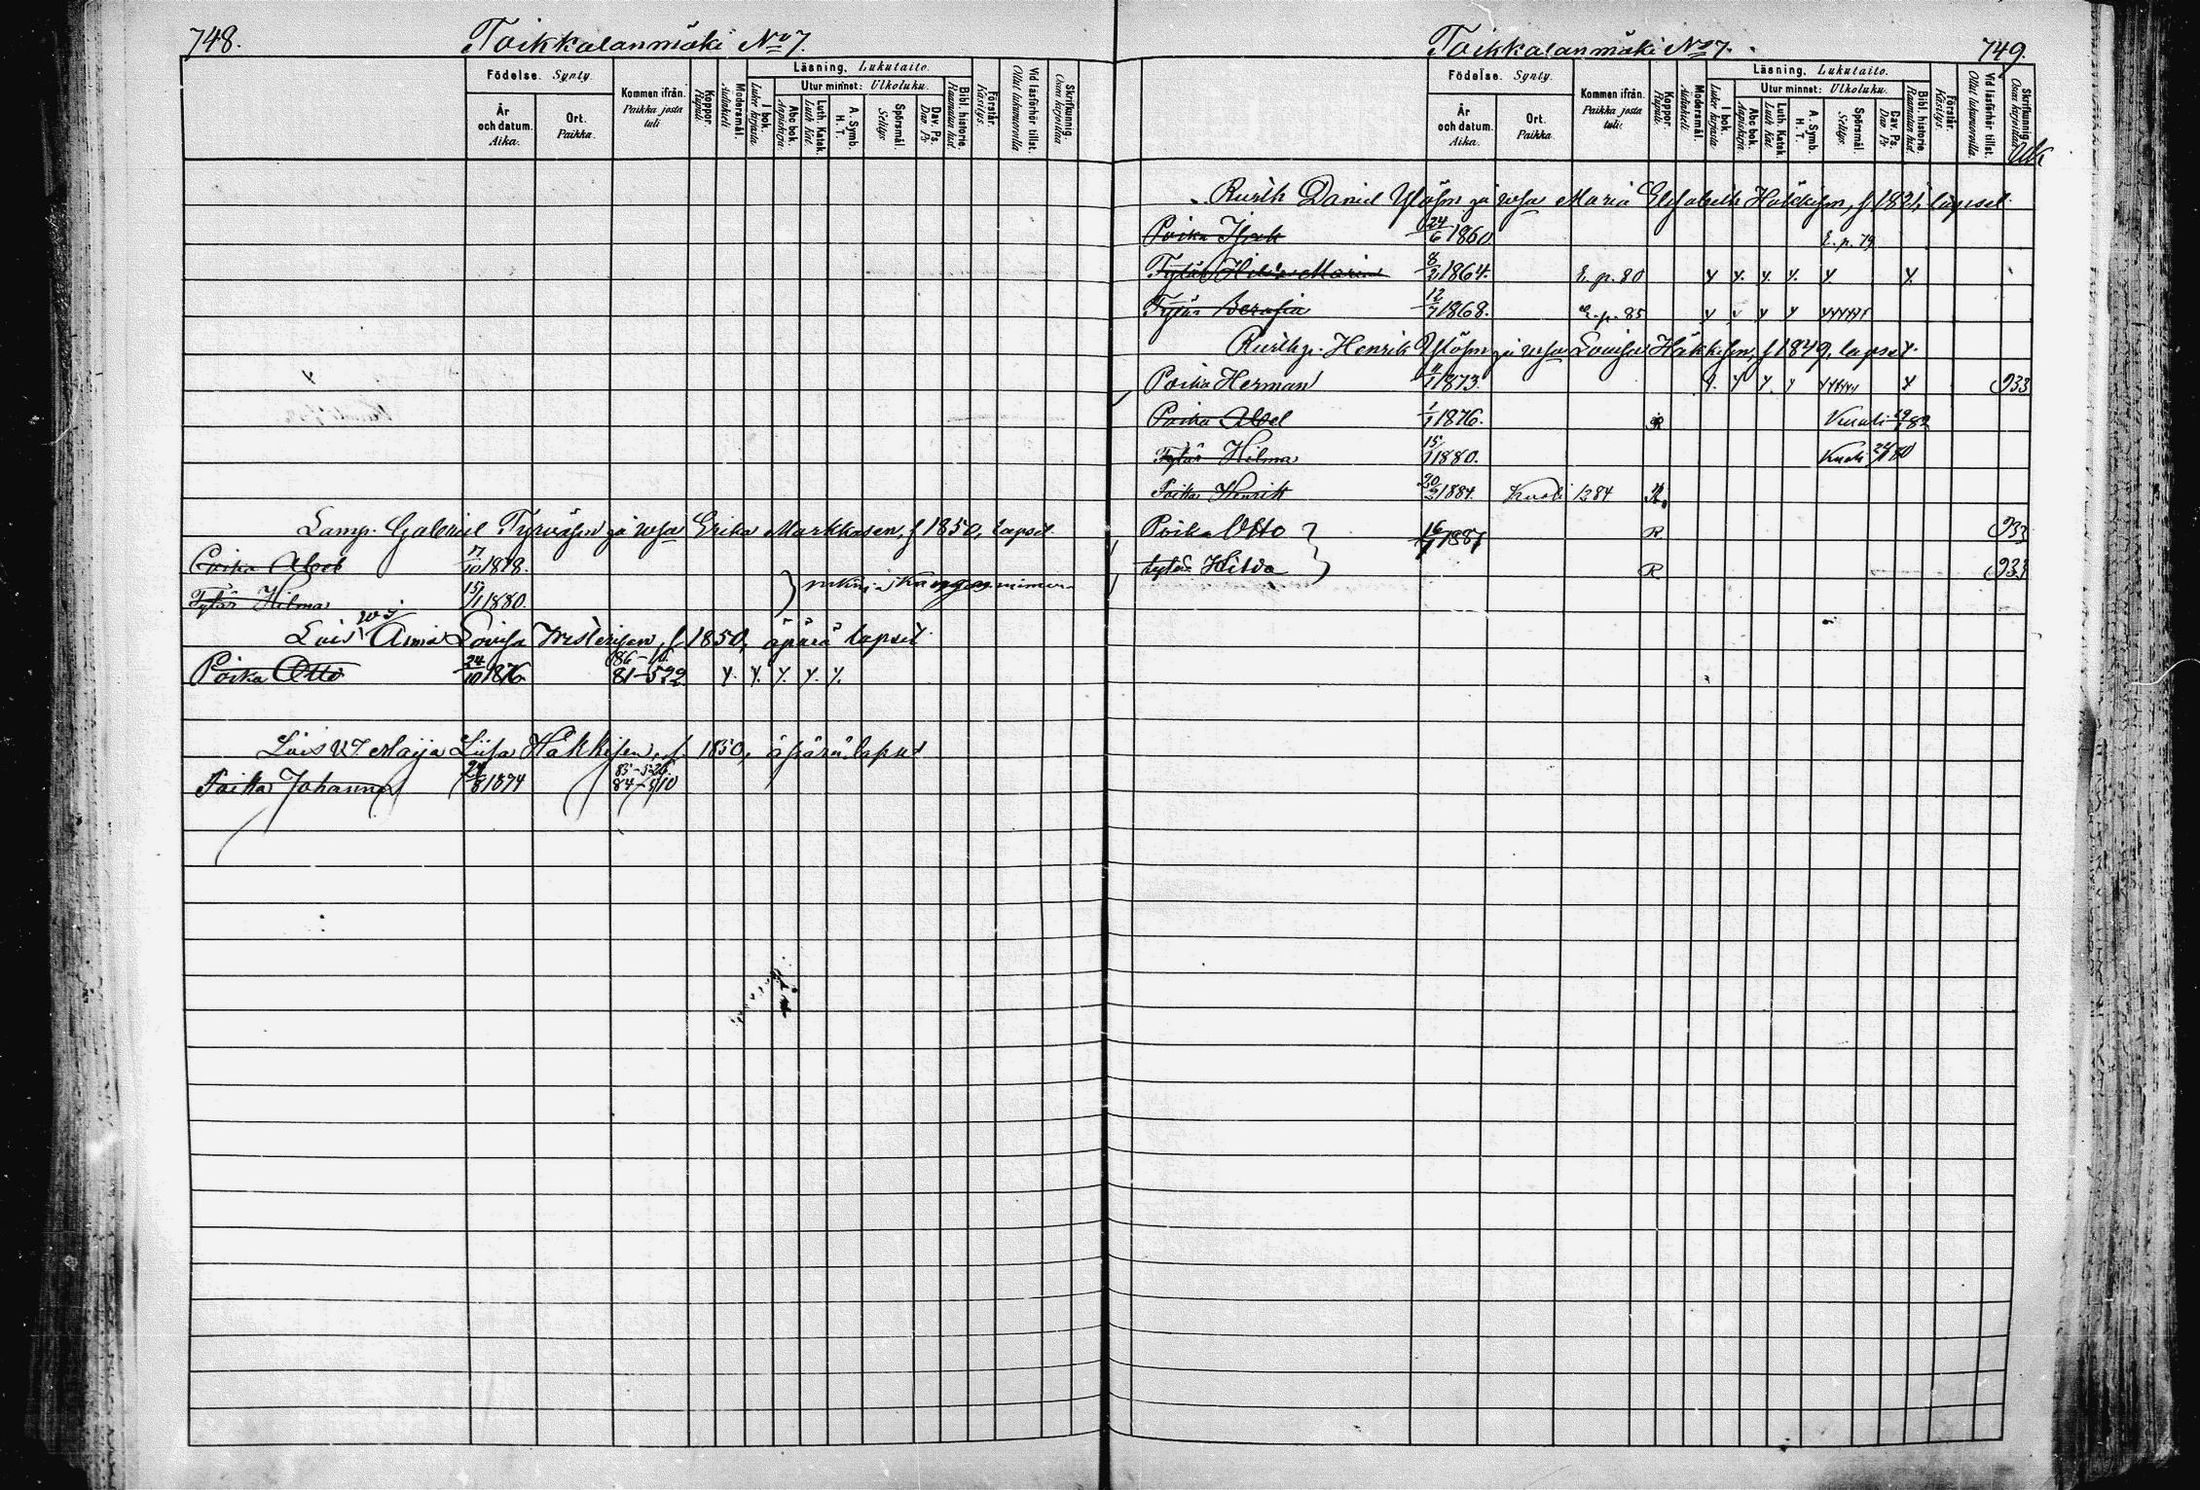 748.
Toikkalanmäki No 7.
Födelse. Synty.
År och datum. Aika.
Ort. Paikka.
Kommen ifrån. Paikka josta tuli
Koppor. Rupuli
Modersmål. Äidinkieli
Läsning. Lukutaito.
I bok. Luker kirjasta
Utur minnet: Ulkoluku.
Abc bok. Aapiskirja.
Luth. Katek. Luth. Kat.
A. Symb. H. T.
Spörsmål. Selitys
Dav. Ps. Dav. Ps
Bibl. historie. Raamatun hist.
Förstår. Käsitys.
Vid läsförhör tillst. Ollut lukumuorolla
Skrifkunnig. Osaa karjoittaa
Lamp. Gabriel Tyrväsen ja wsa Erika Markkasen, f 1850, lapset
Poika Abel 17/10 1878.
Tytär Hilma 15/1 1880.
Lois Anna Lovisa Westerisen, f. 1850, äpärä lapset
86-
Poika Otto 24/10 1876 81-522 y. y. y. y. y.
Lois Maija Liisa Häkkisen, f. 1850, äpärä lapset
Poika Johannes 1874 84-510
749.
Toikkalanmäki No 7.
Födelse. Synty.
År och datum. Aika.
Ort. Paikka.
Kommen ifrån. Paikka josta tuli.
Koppor. Rupuli
Modersmål. Äidinkieli
Läsning. Lukutaito.
I bok. Luker kirjasta
Utur minnet: Ulkoluku.
Abc bok. Aapiskirja.
Luth. Katek. Luth. Kat.
A. Symb. H. T.
Spörsmål. Selitys
Dav. Ps. Dav. Ps
Bibl. historie. Raamatun hist.
Förstår. Käsitys.
Vid läsförhör tillst. Ollut lukumuorolla.
Skrifkunnig. Osaa karjoittaa
Daniel ja wsa Maria Elisabeth Häkkisen, f 1821, lapset
Poika 24/6 1860 E. p. 79
Tytär Maria 8/2 1864. E. p. 80 y y. y. y. y. y.
Tytär 12/7 1868. E. p. 85 y v y y yyyyy
Henrik ja wsa Lovisa Häkkisen, f 1849, lapset.
Poika Herman 1873. y. y y. y yyyyy y 933
Poika Abel 1/1 1876. R Kuoli 82
Tytär Hilma 15/1 1880. Kuoli 80
Poika Henrik 20/2 1884. Kuoli 1284 R.
Poika Otto 16/7 1887 R 933
tytär Hilda R 933